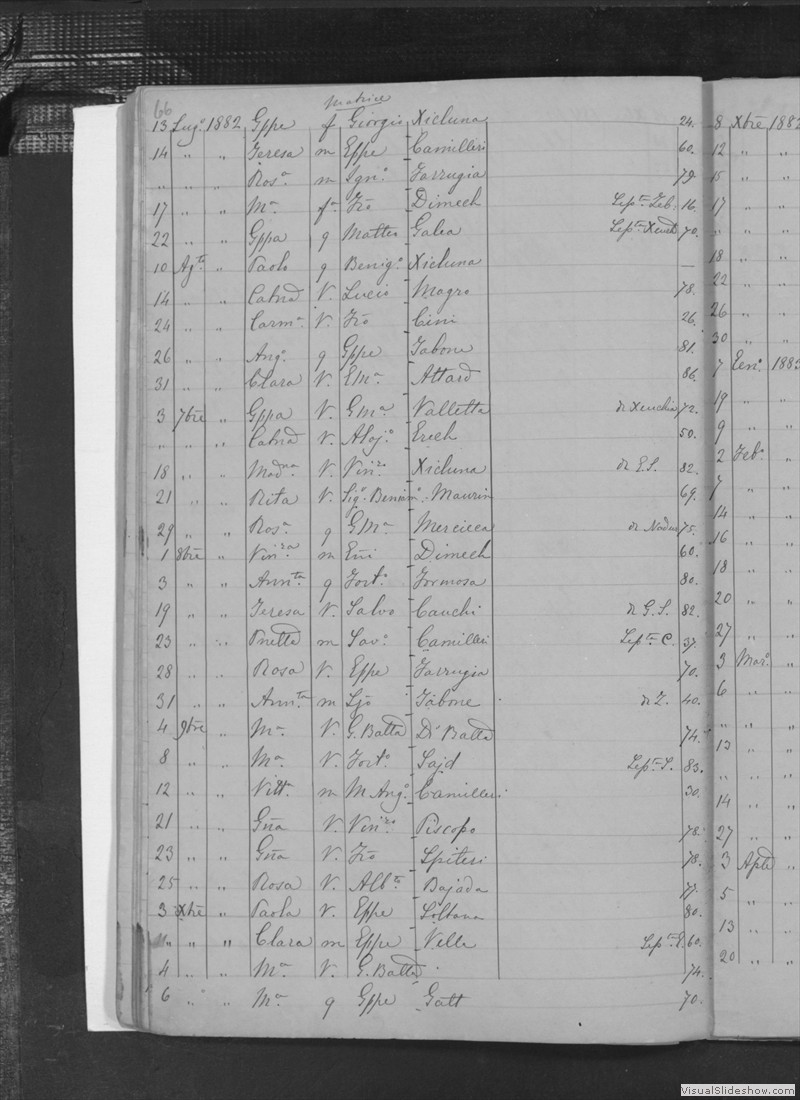 66
Matrice
13 Lug.o 1882 Gppe f Giorgio Xicluna 24.
14 " " Teresa m Eppe Camilleri 60.
" " " Ros.a m Ign.o Farrugia 79.
17 " " M.a f.a Frõ Dimech Sep.ta Zeb. 16.
22 " " Gppa q Matteo Galea 70.
10 Ag.to " Paolo q Benig.o Xicluna —
14 " " V. Lucio Magro 78.
24 " " Carm.a V. Frõ Cini 26.
26 " " Ang.o q Gppe Tabone 81.
31 " " Clara V. E M.a Attard 86.
3 7bre " Gppa V. G M.a Valletta di Xeuchia 72.
" " " V. Aloj.o Erich 50.
18 " " V. Vin.zo Xicluna di E.S. 82.
21 " " Rita V. Sig.o Maurin 69.
29 " " Ros.a q G M.a Mercieca di Nadur 75.
1 8bre " Vin.za m Eñi Dimech 60.
3 " " Ann.ta q Fort.o Formosa 80.
19 " " Teresa V. Salvo Cauchi di G.S. 82.
23 " " m Sav.o Camilleri Sep.ta C. 37.
28 " " Rosa V. Eppe Farrugia 70.
31 " " Ann.ta m Tabone di Z. 40.
4 9bre " M.a V. G. Batta Di Batta 74.
8 " " M.a V. Fort.o Sajd Sep.ta S. 83.
12 " " Vitt.a m M Ang.o Camilleri 30.
21 " " Gña V. Vin.zo Piscopo 78.
23 " " Gña V. Frõ Spiteri 78.
25 " " Rosa V. Alb.to Bajada 77.
3 Xbre " Paola V. Eppe Soltana 80.
" " " Clara m Eppe Vella 60.
4 " " M.a V. G. Batta 74.
6 " " M.a q Gppe Gatt 70.
8 Xbre 1882
12 " "
15 " "
17 " "
" " "
18 " "
22 " "
26 " "
30 " "
7 Gen.o 1883
19 " "
9 " "
2 Feb.o "
7 " "
14 " "
16 " "
18 " "
20 " "
27 " "
3 Mar.o "
6 " "
" " "
13 " "
" " "
14 " "
27 " "
3 Aple "
5 " "
13 " "
20 " "
VisualSlideshow.com